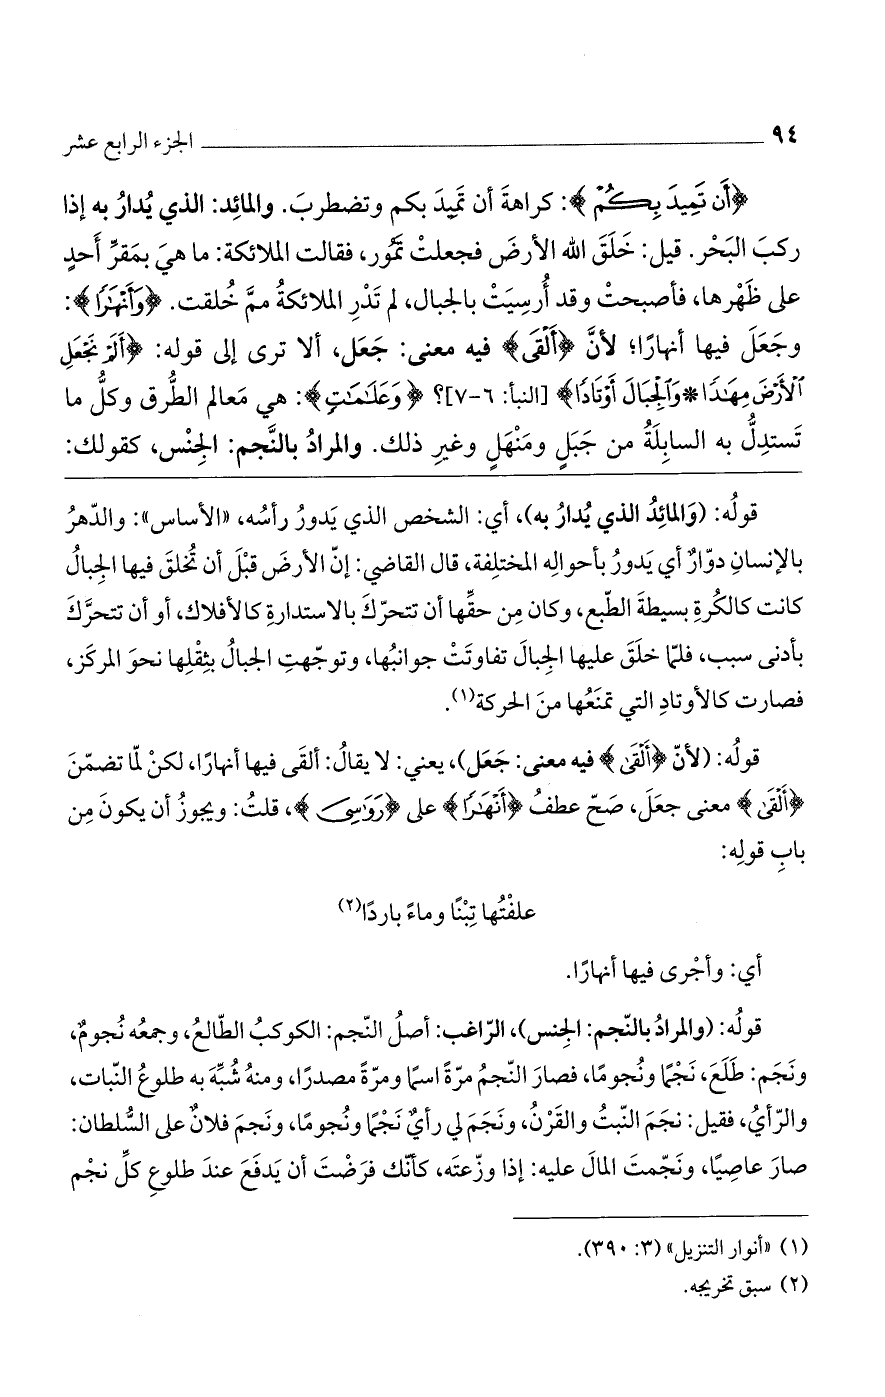 ٩٤ الجزء الرابع عشر
﴿أَن تَمِيدَ بِكُمْ﴾: كراهةَ أن تَمِيدَ بكم وتضطربَ. والمائِد: الذي يُدارُ به إذا
ركبَ البَحْر. قيل: خَلَقَ الله الأرضَ فجعلتْ تَمُور، فقالت الملائكة: ما هيَ بمَقرِّ أَحدٍ
على ظَهْرها، فأصبحتْ وقد أُرسِيَتْ بالجبال، لم تَدْرِ الملائكةُ ممَّ خُلقت. ﴿وَأَنْهَٰرًا﴾:
وجَعَلَ فيها أنهارًا؛ لأنَّ ﴿أَلْقَى﴾ فيه معنى: جَعَل، ألا ترى إلى قوله: ﴿أَلَمْ نَجْعَلِ
ٱلْأَرْضَ مِهَٰدًا * وَٱلْجِبَالَ أَوْتَادًا﴾ [النبأ: ٦-٧]؟ ﴿وَعَلَٰمَٰتٍ﴾: هي مَعالم الطُّرق وكلُّ ما
تَستدِلُّ به السابِلَةُ من جَبَلٍ ومَنْهَلٍ وغيرِ ذلك. والمرادُ بالنَّجم: الجِنْس، كقولك:
قولُه: (وَالمائِدُ الذي يُدارُ به)، أي: الشخص الذي يَدورُ رأسُه، «الأساس»: والدّهرُ
بالإنسانِ دوّارٌ أي يَدورُ بأحوالِه المختلِفة، قال القاضي: إنّ الأرضَ قبْلَ أن تُخلقَ فيها الجبالُ
كانت كالكُرةِ بسيطةَ الطّبع، وكان مِن حقِّها أن تتحرّكَ بالاستدارةِ كالأفلاك، أو أن تتحرَّكَ
بأدنى سبب، فلمّا خلَقَ عليها الجِبالَ تفاوتَتْ جوانبُها، وتوجّهتِ الجبالُ بثِقْلِها نحوَ المركَز،
فصارت كالأوتادِ التي تمنَعُها منَ الحركة(١).
قولُه: (لأنّ ﴿أَلْقَىٰ﴾ فيه معنى: جَعَل)، يعني: لا يقالُ: ألقَى فيها أنهارًا، لكنْ لمّا تضمّنَ
﴿أَلْقَىٰ﴾ معنى جعَلَ، صَحّ عطفُ ﴿أَنْهَٰرًا﴾ على ﴿رَوَٰسِيَ﴾، قلتُ: ويجوزُ أن يكونَ مِن
بابِ قولِه:
علفْتُها تِبْنًا وماءً باردًا(٢)
أي: وأجْرى فيها أنهارًا.
قولُه: (والمرادُ بالنّجم: الجنس)، الرّاغب: أصلُ النّجم: الكوكبُ الطّالعُ، وجمعُه نُجومٌ،
ونَجَم: طَلَعَ، نَجْمًا ونُجومًا، فصارَ النّجمُ مرّةً اسمًا ومرّةً مصدرًا، ومنهُ شُبِّهَ به طلوعُ النّبات،
والرّأيُ، فقيل: نجَمَ النّبتُ والقَرْنُ، ونَجَمَ لي رأيٌ نَجْمًا ونُجومًا، ونَجمَ فلانٌ على السُّلطان:
صارَ عاصِيًا، ونَجّمتَ المالَ عليه: إذا وزّعتَه، كأنّك فرَضْتَ أن يَدفَعَ عندَ طلوعِ كلِّ نجْم
(١) «أنوار التنزيل» (٣: ٣٩٠).
(٢) سبق تخريجه.